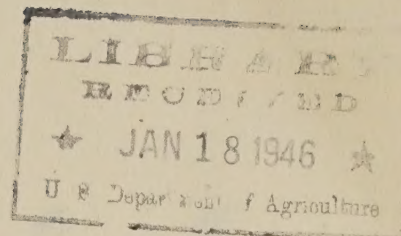 LIBRARY
RECEIVED
★ JAN 18 1946 ★
U S Department of Agriculture